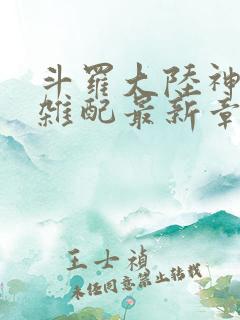 斗罗大陸神
雑配最新章
王士禎
未经同意禁止转载